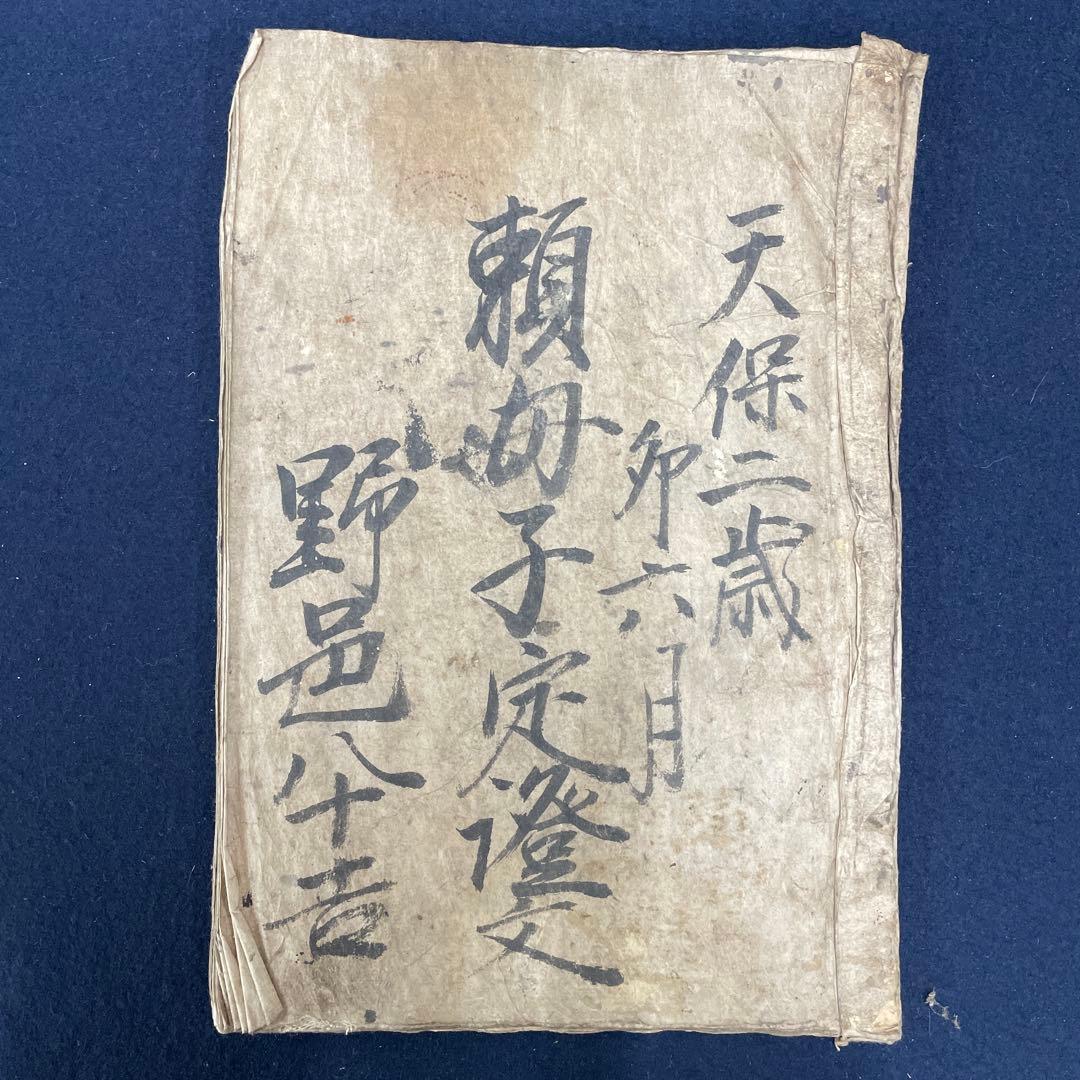 天保二歳
卯六月
頼母子定證文
野邑八十吉